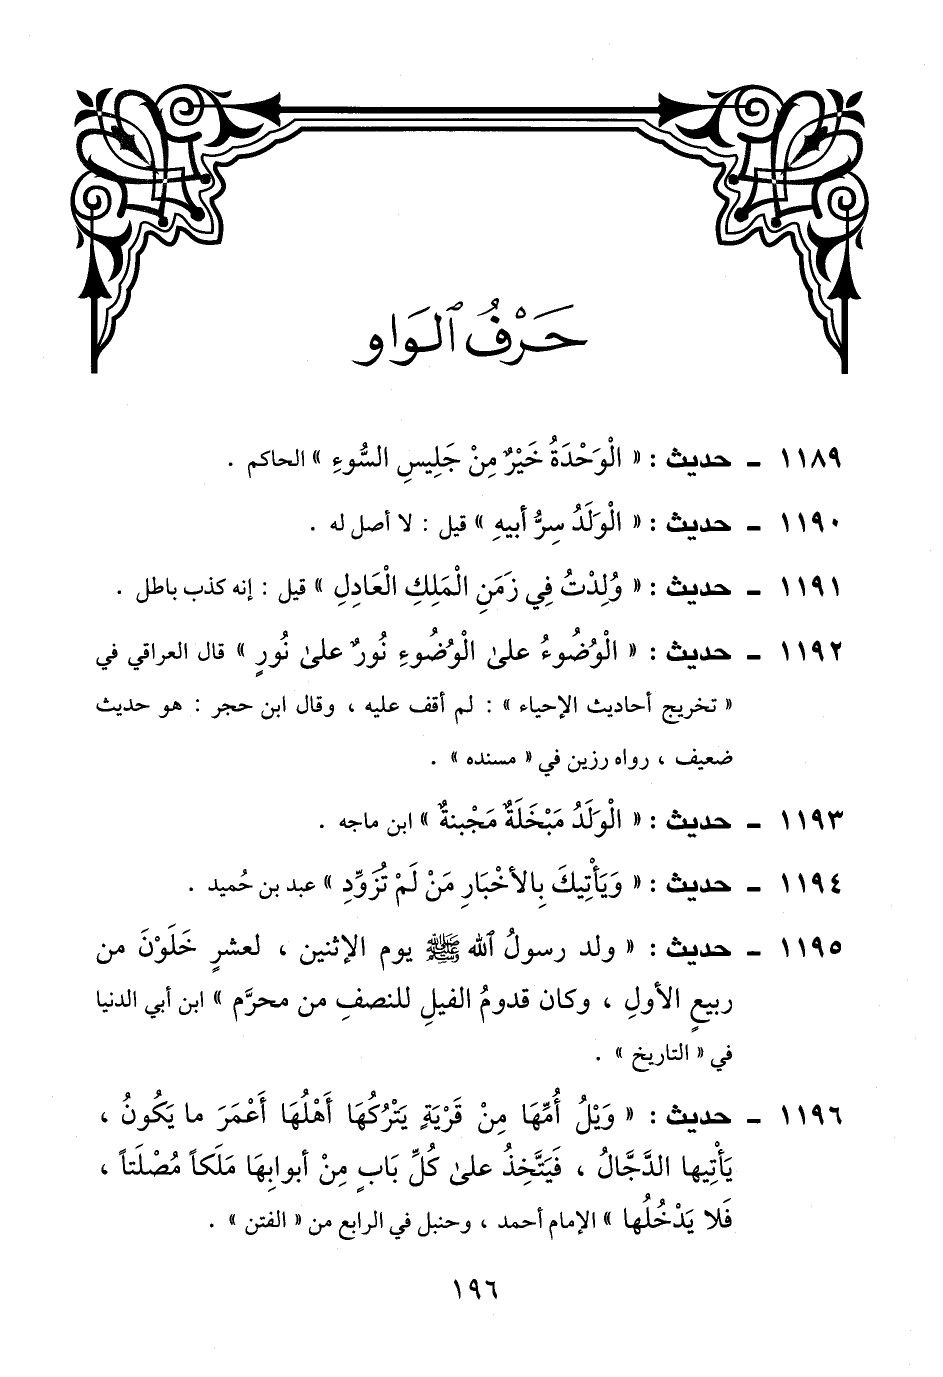 حَرْفُ ٱلْوَاو
١١٨٩ - حديث : « الْوَحْدَةُ خَيْرٌ مِنْ جَلِيسِ السُّوءِ » الحاكم .
١١٩٠ - حديث : « الْوَلَدُ سِرُّ أبيهِ » قيل : لا أصل له .
١١٩١ - حديث : « وُلِدْتُ فِي زَمَنِ الْمَلِكِ الْعَادِلِ » قيل : إنه كذب باطل .
١١٩٢ - حديث : « الْوُضُوءُ علىٰ الْوُضُوءِ نُورٌ علىٰ نُورٍ » قال العراقي في
« تخريج أحاديث الإحياء » : لم أقف عليه ، وقال ابن حجر : هو حديث
ضعيف ، رواه رزين في « مسنده » .
١١٩٣ - حديث : « الْوَلَدُ مَبْخَلَةٌ مَجْبنةٌ » ابن ماجه .
١١٩٤ - حديث : « وَيَأْتِيكَ بِالأخْبَارِ مَنْ لَمْ تُزَوِّدِ » عبد بن حُميد .
١١٩٥ - حديث : « ولد رسولُ ٱلله ﷺ يوم الإثنين ، لعشرٍ خَلَوْنَ من
ربيعٍ الأولِ ، وكان قدومُ الفيلِ للنصفِ من محرَّم » ابن أبي الدنيا
في « التاريخ » .
١١٩٦ - حديث : « وَيْلُ أُمِّهَا مِنْ قَرْيَةٍ يَتْرُكُهَا أَهْلُهَا أَعْمَرَ ما يَكُونُ ،
يَأْتِيها الدَّجَّالُ ، فَيَتَّخِذُ علىٰ كُلِّ بَابٍ مِنْ أبوابِهَا مَلَكاً مُصْلَتاً ،
فَلا يَدْخُلُها » الإمام أحمد ، وحنبل في الرابع من « الفتن » .
١٩٦